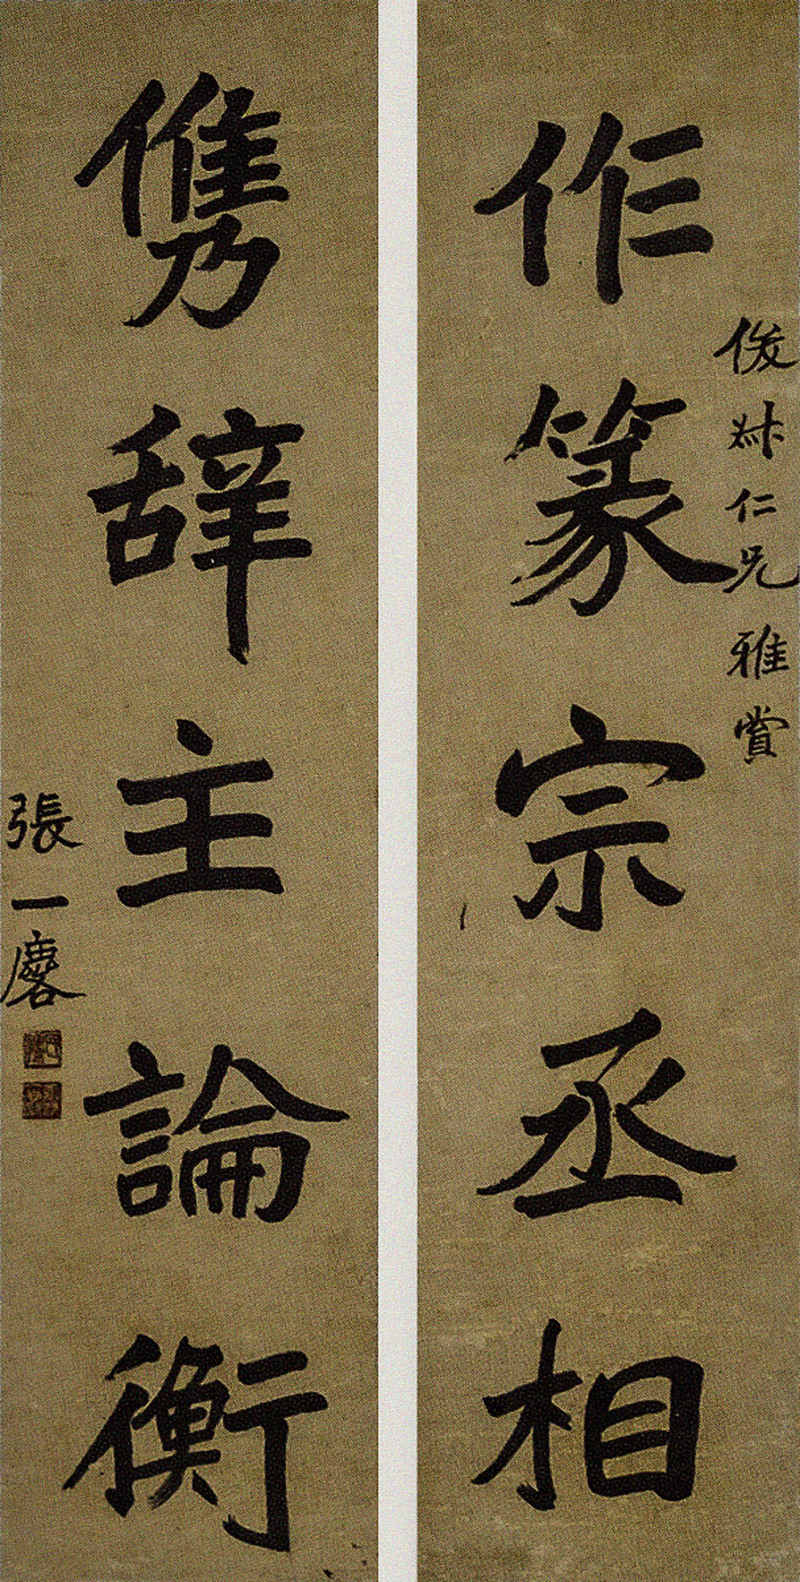 俊叔仁兄雅賞
作篆宗丞相
儁辞主論衡
張一麐